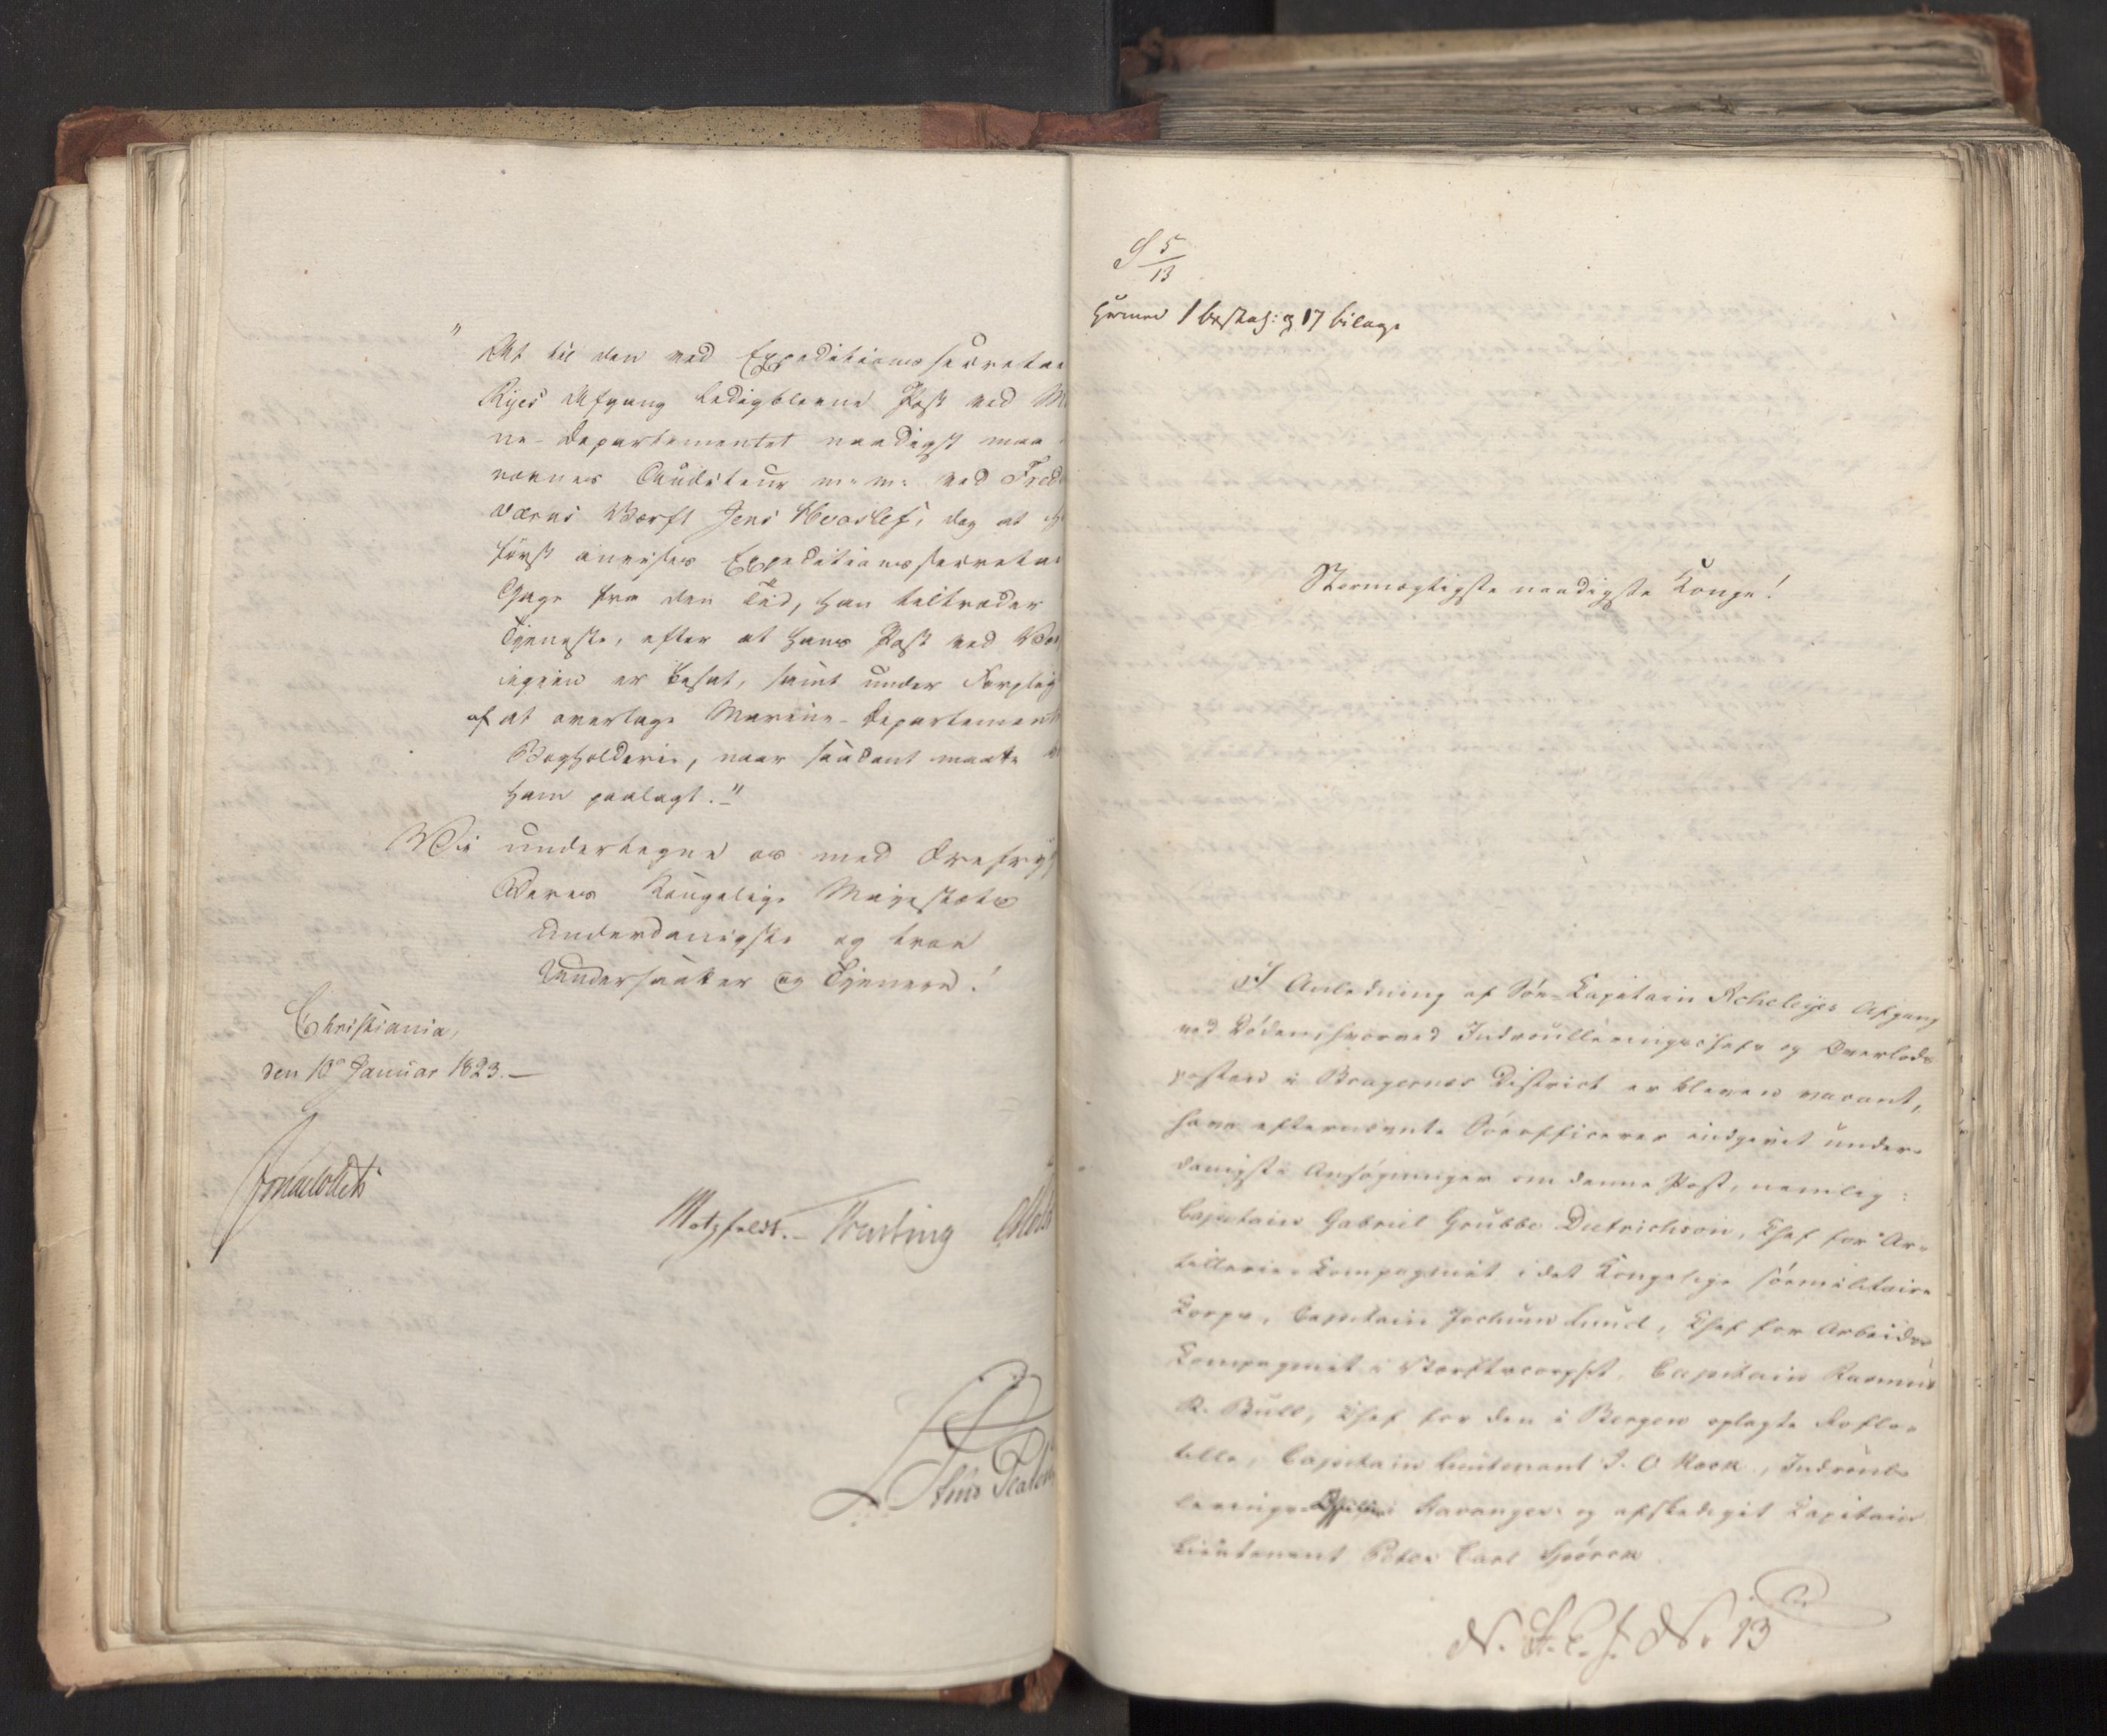 "At til den ved Expeditionssecretai
Ryes Afgang ledigblevne Post ved M
ne-Departementet naadigst maa
nævnes Auditeur m: m: ved Fred
værns Værft Jens Hvoslef, dog at
først anvises Expeditionssecretai
Gage fra den Tid, han tiltræder
Tjeneste, efter at hans Post ved Væ
igjen er besat, samt under Forplig
af at overtage Marine-Departement
Bogholderie, naar saadant maatte
ham paalagt."
Vi undertegne os med Ærefryg
Deres Kongelige Majestæts
underdanigste og troe
Undersaatter og Tjenere!
Christiania,
den 10de Januar 1823.
Motzfeldt.
S 5/13
Hermed 1 bestal: og 17 bilage
Stormægtigste naadigste Konge!
I Anledning af Søe-Capitain Acheleyes Afgang
ved Døden, hvorved Indroulleringschefs og Overlods
posten i Bragernes District er bleven vacant,
have efternævnte Søeofficerer indgivet under-
danigste Ansøgninger om denne Post, nemlig:
Capitain Gabriel Grubbe Dietrichson, Chef for Ar-
tillerie-Compagniet i det Kongelige søemilitaire
Corps, Capitain Jochum Lund, Chef for Arbeids
Compagniet i Værftscorpset, Capitain Rasmus
R. Bull, Chef for den i Bergen oplagte Roeflo-
tille, Capitain Lieutenant J. O. , Indroul-
lerings i Stavanger og afskediget Capitain
Lieutenant Peter Carl
N. 13